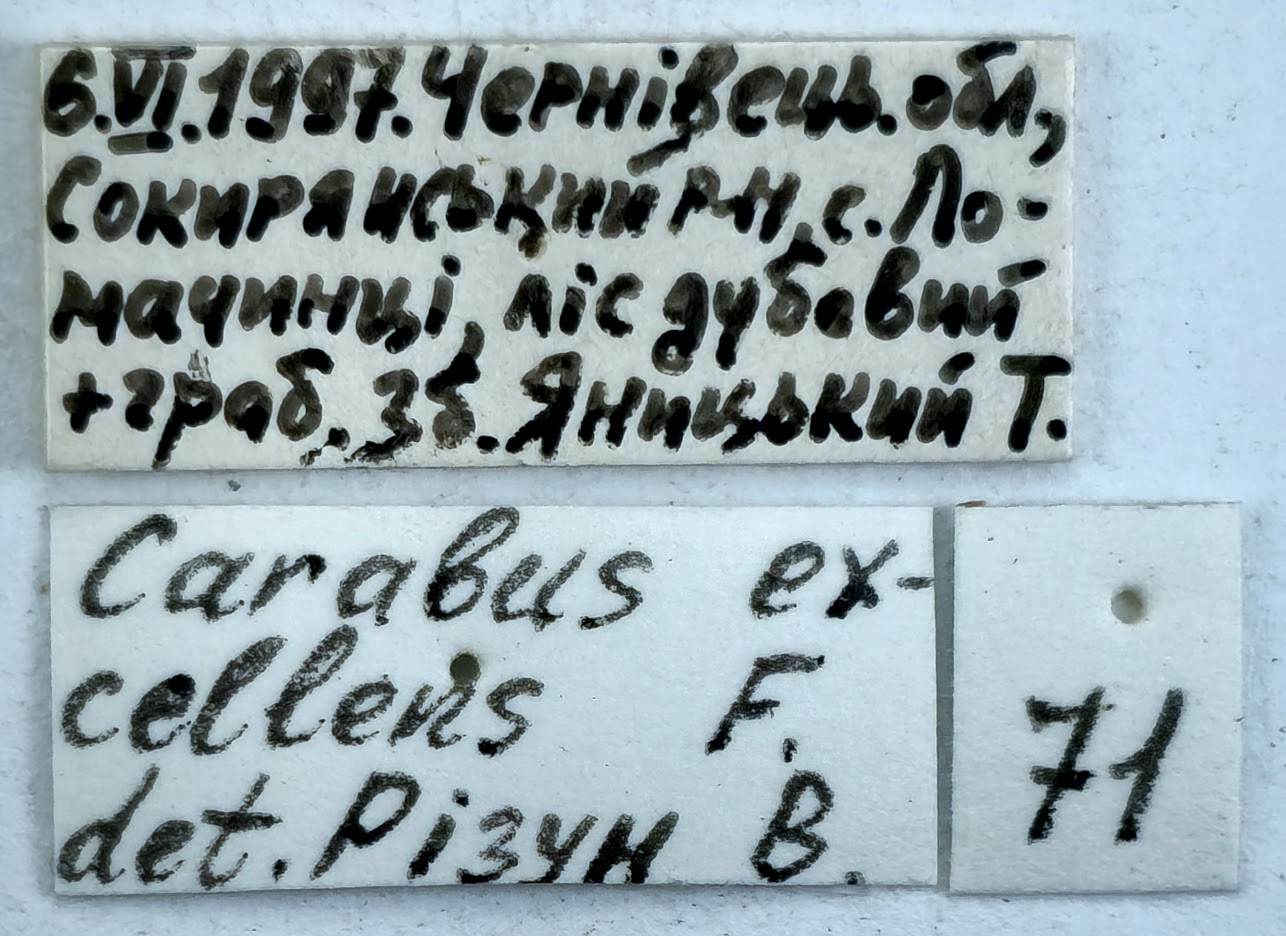 6.VI.1997. Чернівець. обл,
Сокирянський р-н, с. Ло-
мачинці, ліс дубовий
+граб, зб. Яницький Т.
Carabus ex-
cellens F.
det. Різун В.
71